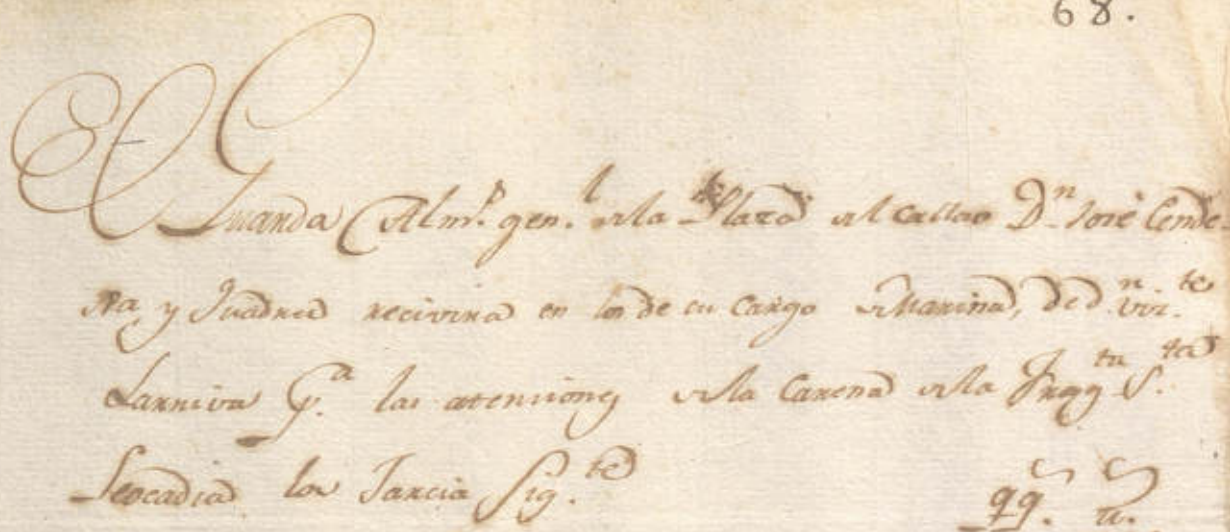 68.
El Guarda Alm.ⁿ gen.ˡ de la Plaza del Callao Dⁿ José Cende
ra y Quadra recivira en los de su cargo de Marina, de dⁿ Vizᵗᵉ
Larriva pᵃ las atenciones de la Carena de la Fragᵗᵃ Sᵗᵃ
Leocadia la Jarcia Sigᵗᵉ
qqˢ